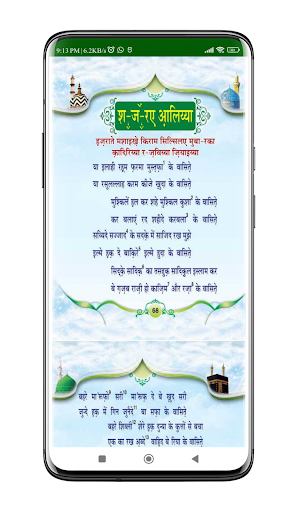 9:13 PM | 6.2KB/s
श-ज-रए आ़लिय्या
ह़ज़राते मशाइख़े किराम सिल्सिलए मुबा-रका
क़ादिरिय्या र-ज़विय्या ज़ियाइय्या
या इलाही रह़्म फ़रमा मुस्त़फ़ा के वासित़े
या रसूलल्लाह करम कीजे ख़ुदा के वासित़े
मुश्किलें ह़ल कर शहे मुश्किल कुशा के वासित़े
कर बलाएं रद शहीदे करबला के वासित़े
सय्यिदे सज्जाद के सदक़े में साजिद रख मुझे
इल्मे ह़क़ दे बाक़िरे इल्मे हुदा के वासित़े
सिद्क़े सादिक़ का तसद्दुक़ सादिक़ुल इस्लाम कर
बे ग़ज़ब राज़ी हो काज़िम और रज़ा के वासित़े
68
बहरे मा'रूफ़ो सरी मा'रूफ़ दे बे ख़ुद सरी
जुन्दे ह़क़ में गिन जुनैदे बा सफ़ा के वासित़े
बहरे शिब्ली शेरे ह़क़ दुन्या के कुत्तों से बचा
एक का रख अ़ब्दे वाह़िद बे रिया के वासित़े